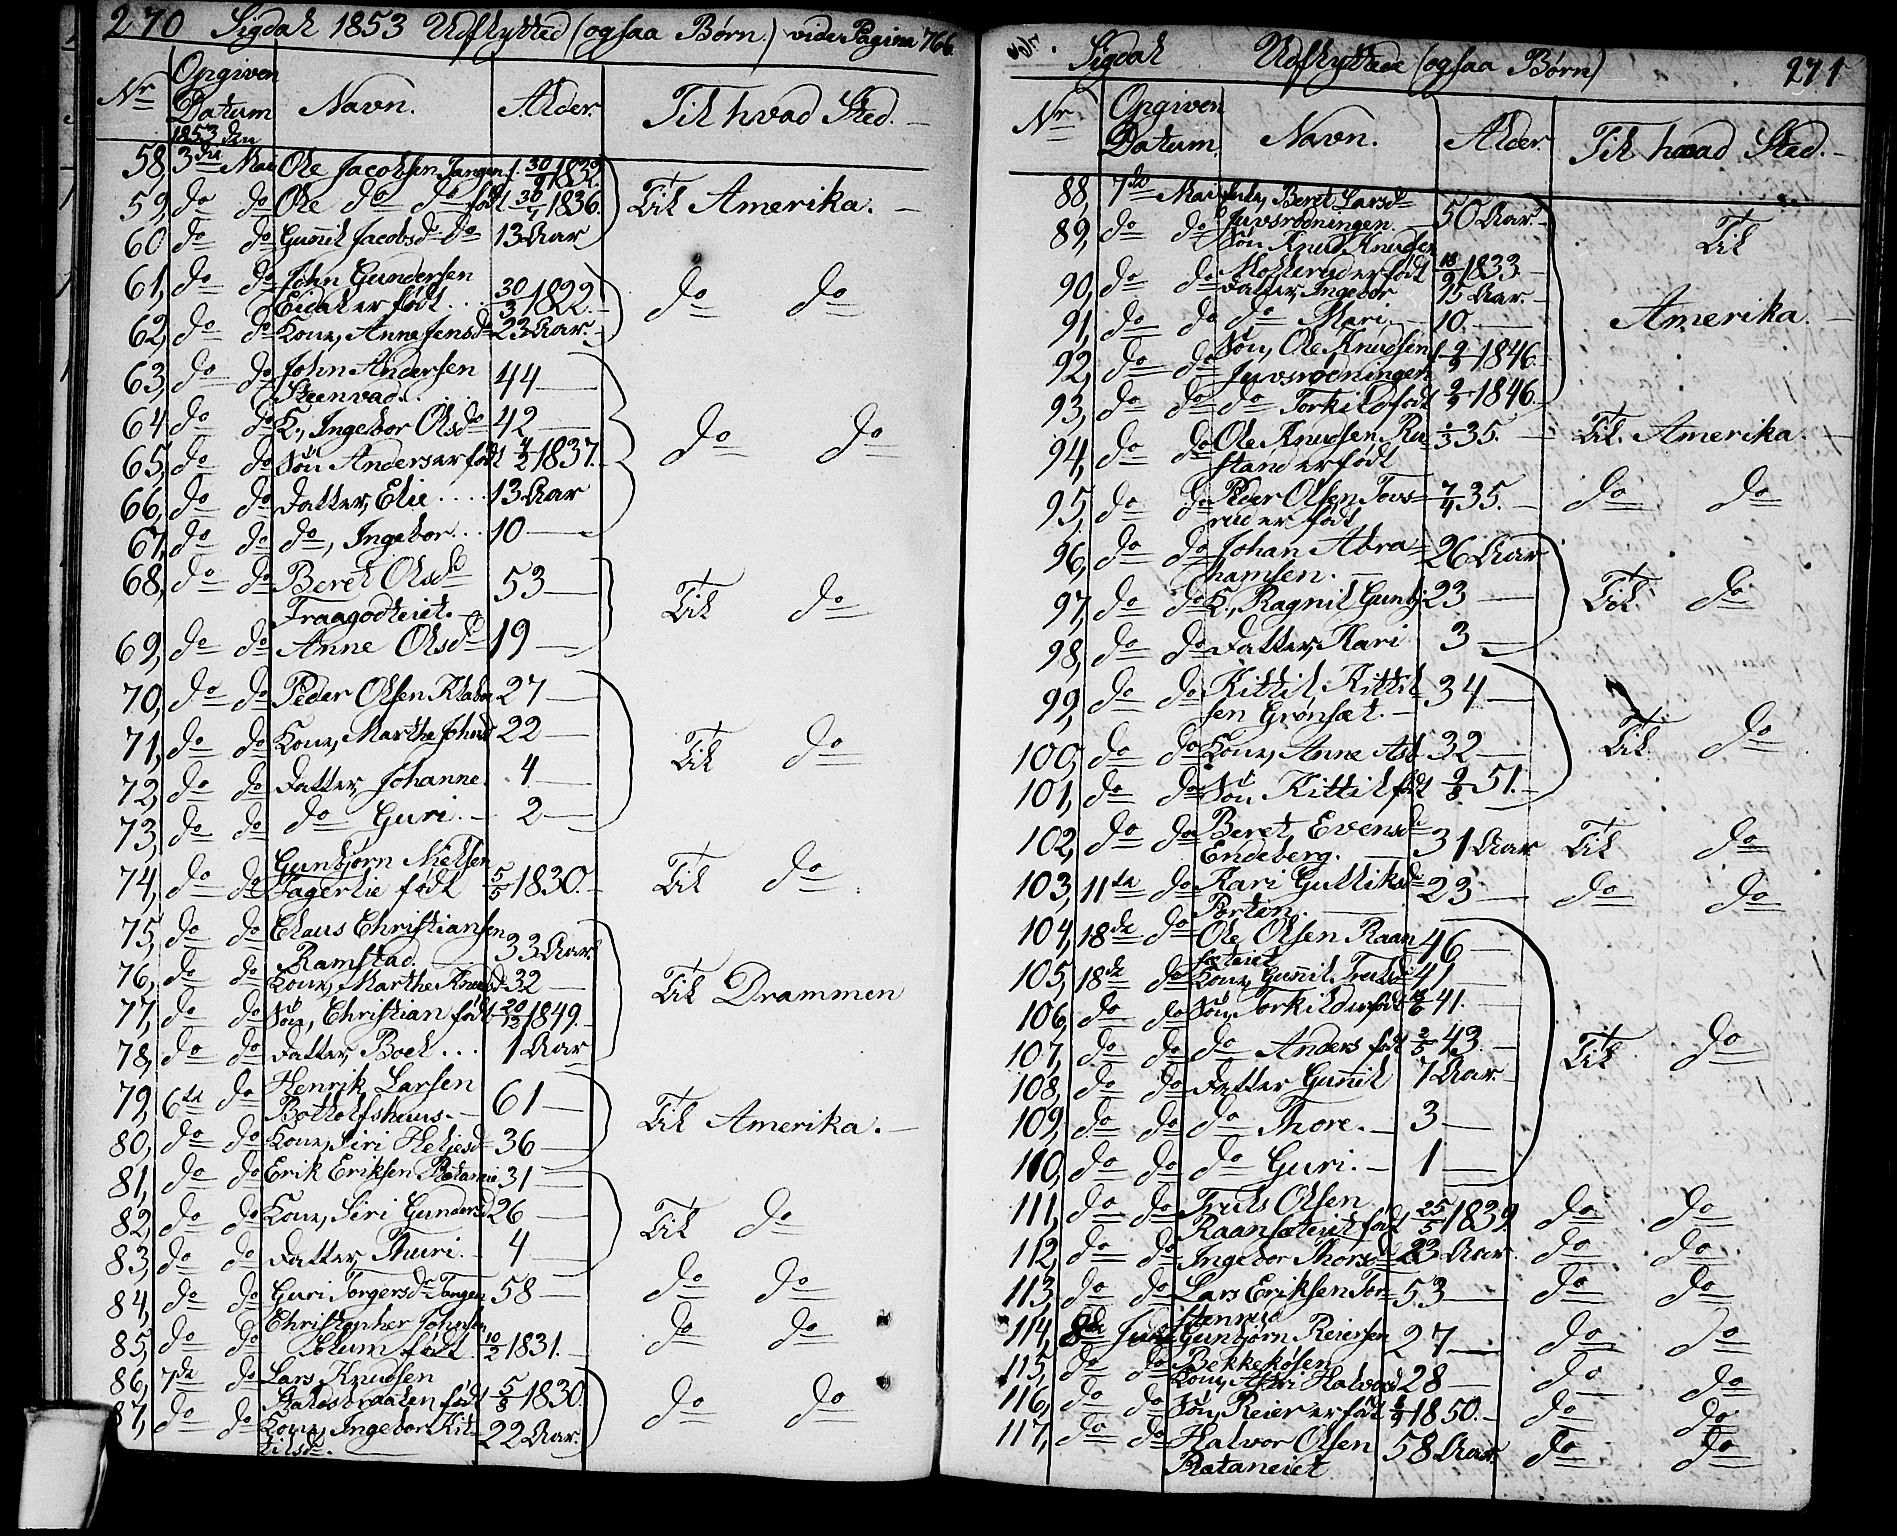 270 Sigdal 1853 Udflytted (ogsaa Børn.) vide Pagina 766
Nr Opgiven Datum Navn. Alder. Til hvad Sted.
1853 den
58, 3die Mai Ole Jacobsen Tangen f. 30/9 1832.
59, do do Ole do do født 30/7 1836. Til Amerika.
60 do do Gunnil Jacobsd do 13 Aar
61, do do John Gundersen
Eidal er født 30/3 1822. do do
62, do do Kone, Anne Jensd 23 Aar
63, do do John Andersen 44
Steenvad.
64 do do K., Ingebor Olsd 42 do do
65, do do Søn Anders er født 4/2 1837.
66, do do Datter, Elie 13 Aar
67, do do do, Ingebor 10
68, do do Beret Olsd 53
Fraagodteiet. Til do
69, do do Anne Olsd 19
70, do do Peder Olsen 27
71, do do Kone, Marthe Johnsd 22 Til do
72, do do Datter, Johanne 4
73, do do do Guri. 2
74, do do Gunbjørn Nielsen
Fagerlie født 5/5 1830. Til do
75, do do Claus Christiansen 33 Aar
Ramstad.
76, do do Kone, Marthe Knudsd 32 Til Drammen
77, do do Søn, Christian født 20/12 1849.
78, do do Datter, Boel 1 Aar
79, 6te do Henrik Larsen 61
Botholfshuus. Til Amerika.
80, do do Kone, Siri Heljesd 36
81, do do Erik Eriksen Rataneie 31
82, do do Kone, Siri Gundersd 26 Til do
83, do do Datter, Thuri. 4
84, do do Guri Torgersd Tangen 58 do do
85, do do Christopher Johnsen
Solum født 10/2 1831. do do
86, 7de do Lars Knudsen
Staldsbraaten født 5/8 1830. do do
87, do do Kone, Ingebor Kit- 22 Aar.
tilsd.
Sigdal Udflyttede (ogsaa Børn) 271
Nr Opgiven Datum. Navn. Alder. Til hvad Sted.
88, 7de Mai Enke, Beret Larsd 50 Aar.
Juvsrodningen. Til
89, do do Søn Knud Knudsen
Mollerud er født 18/9 1833.
90, do do Datter, Ingebor 15 Aar.
91, do do do Mari 10. Amerika.
92, do do Søn, Ole Knudsen f. 2/9 1846.
Juvsrodningen
93, do do do Torkild født 2/9 1846
94, do do Ole Knudsen Ru- 1/3 35. Til Amerika.
stand er født
95, do do Peder Olsen Tovs- 7/4 35. do do
rud er født
96, do do Johan Abra- 26 Aar
hamsen.
97, do do K., Ragnil Gunbj 23 Til do
98, do do Datter, Kari 3
99, do do Kittil Kittil- 34
sen Grønsæt.
100, do do Kone, Anne Asl 32 Til do
101, do do Søn Kittil født 9/8 51.
102, do do Beret Evensd 31 Aar Til do
Endeberg.
103, 11te do Kari Gulliksd 23 do do
Porten.
104, 18de do Ole Olsen Raan- 46
sæteiet
105, 18de do Kone, Gunnil Trulsd 41
106, do do Søn, Torkild er født 41.
107, do do do Anders født 2/5 43. Til do
108, do do Datter Gunnil 7 Aar.
109, do do do Thore. 3
110, do do do Guri. 1
111, do do Truls Olsen
Raansæteiet født 25/5 1839 do do
112, do do Ingebor Thorsd 23 Aar do do
113, do do Lars Eriksen Tor- 53 do do
stenrud
114, 8de Juni Gunbjørn Reiersen 27 do do
Bekkekosen
115, do do Kone, Halvorsd 28 do do
116, do do Søn, Reier er født 1850. do do
117, do do Halvor Olsen 58 Aar do do
Rataneiet